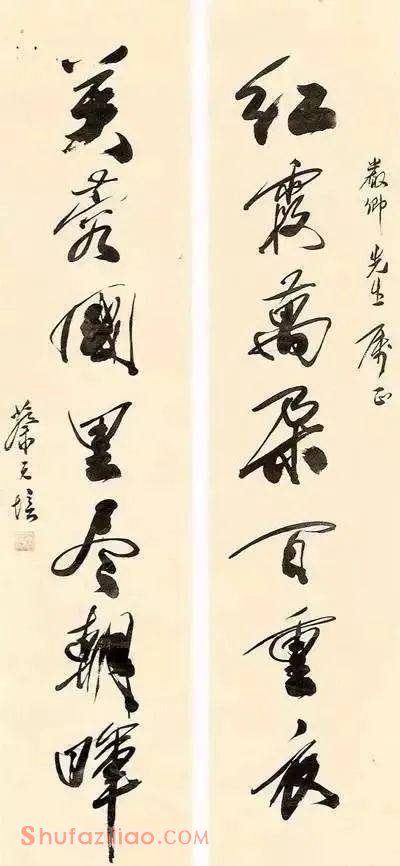 卿先生属正
红霞萬朵百重衣
芙蓉國里尽朝暉
蔡元培
Shufaziliao.COM